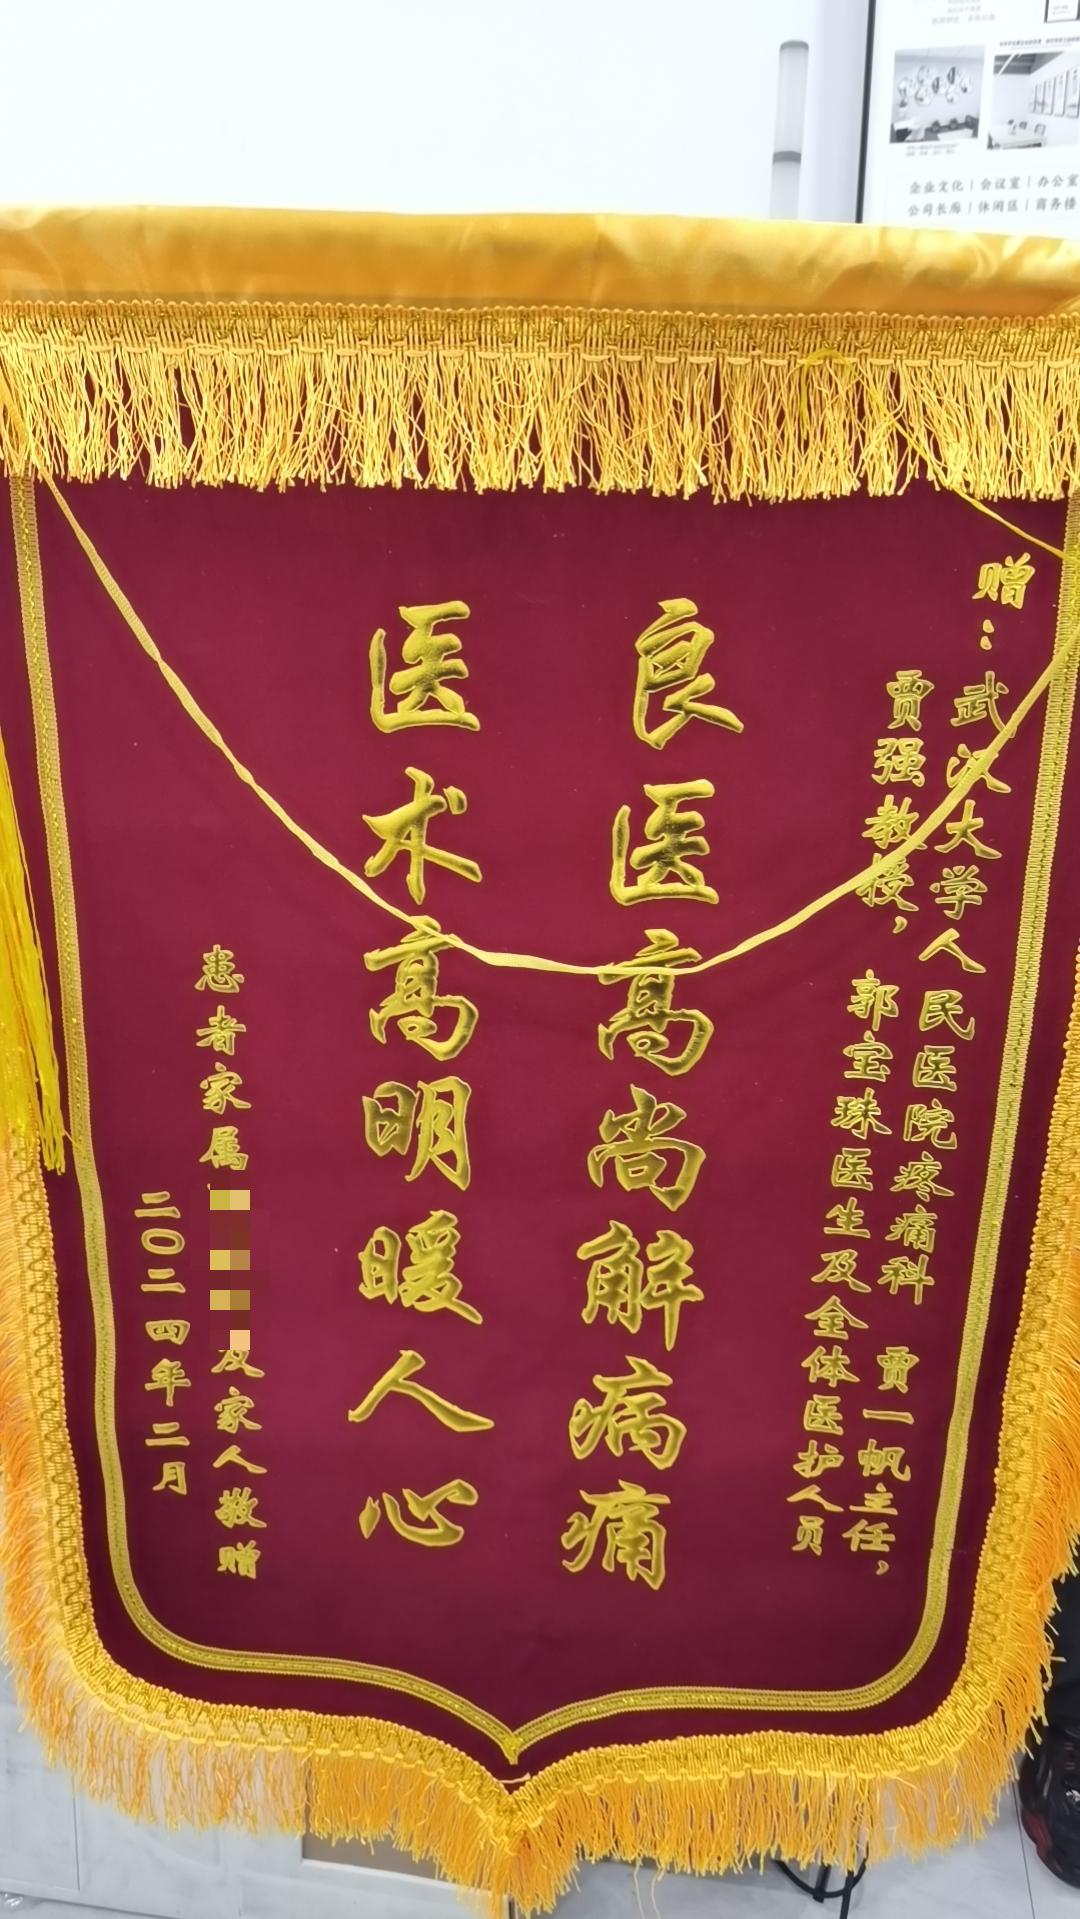 赠：武汉大学人民医院疼痛科 贾一帆主任，
贾强教授，郭宝珠医生及全体医护人员
良医高尚解病痛
医术高明暖人心
患者家属
及家人敬赠
二〇二四年二月
企业文化｜会议室｜办公室
公司长廊｜休闲区｜商务楼